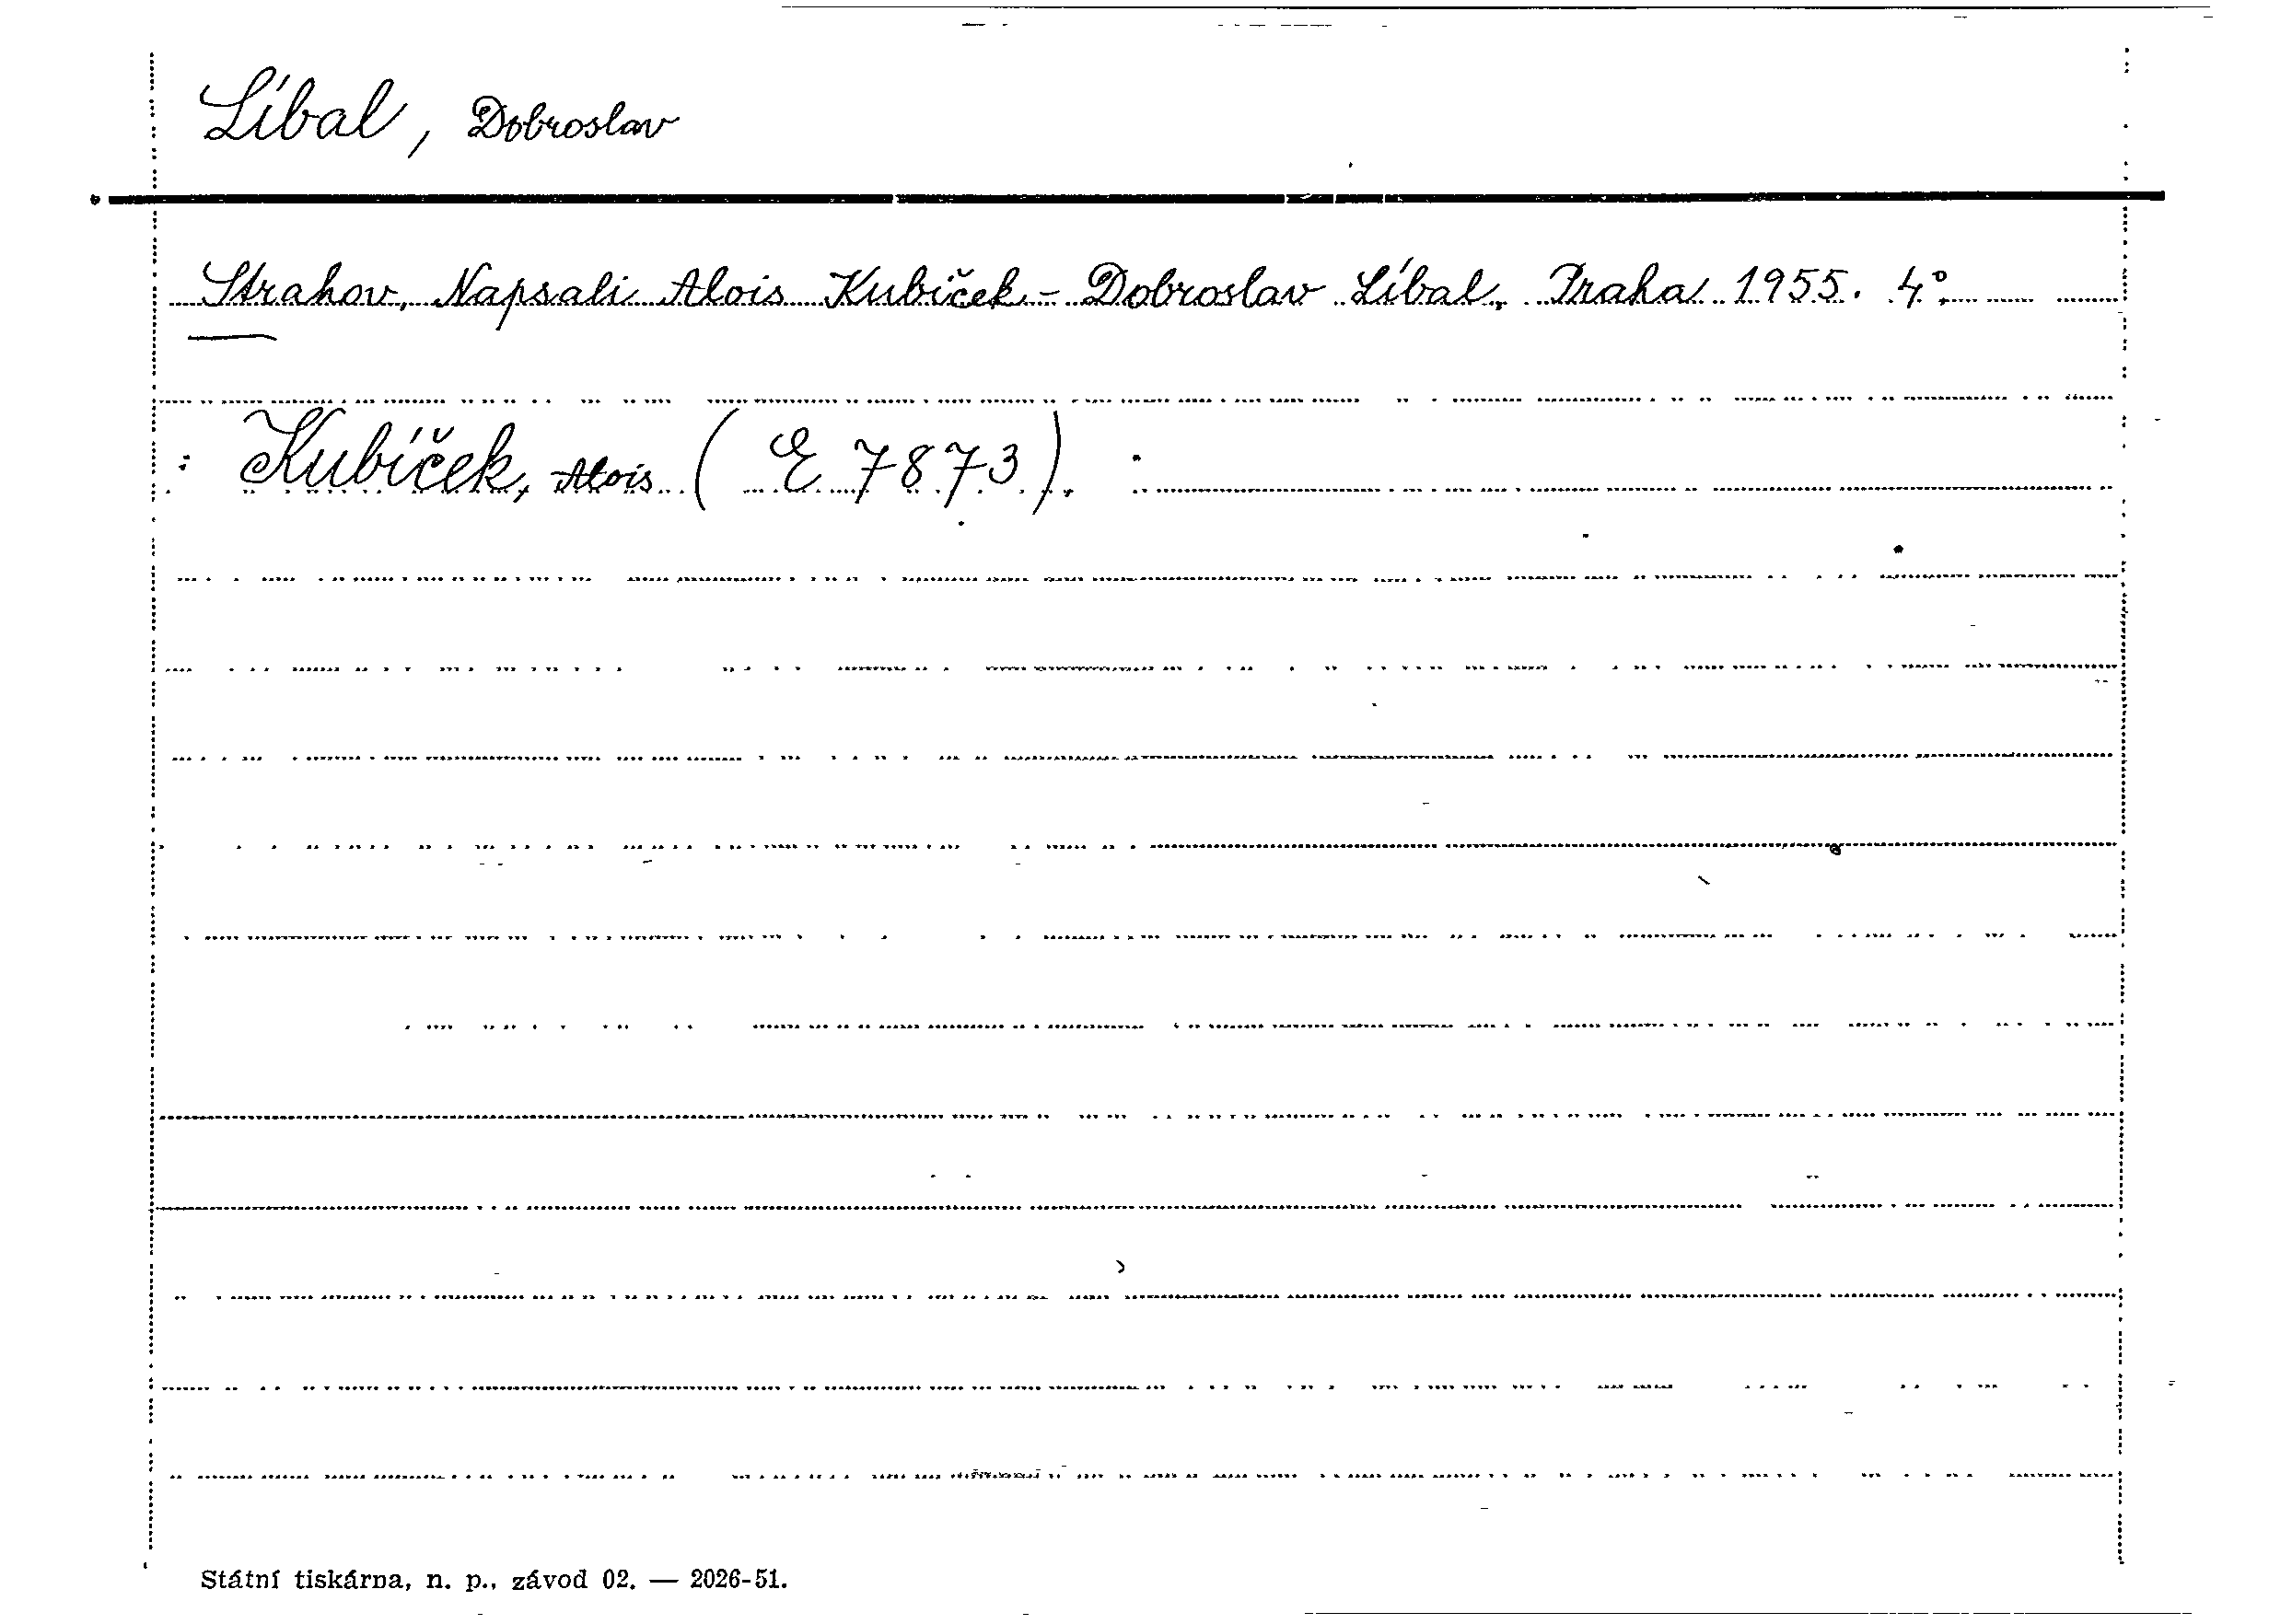 Líbal, Dobroslav
Strahov, Napsali Alois Kubíček - Dobroslav Líbal, Praha 1955. 4°.
: Kubíček, Alois (E 7873).
Státní tiskárna, n. p., závod 02. — 2026-51.